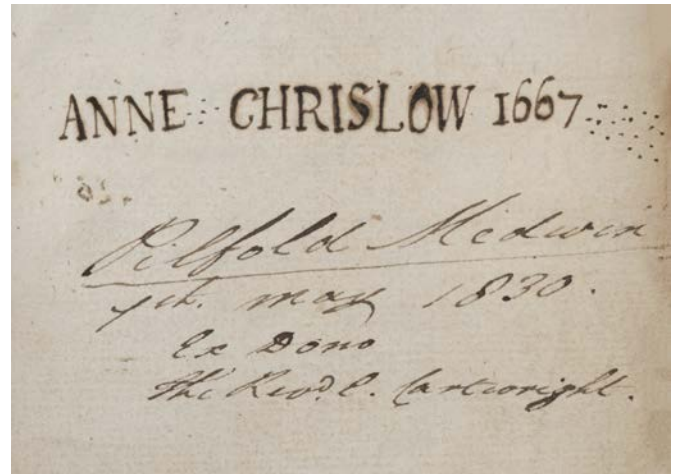 ANNE CHRISLOW 1667
Pilfold Medwin
7th. may 1830.
Ex Dono
The Revd. E. Cartwright.